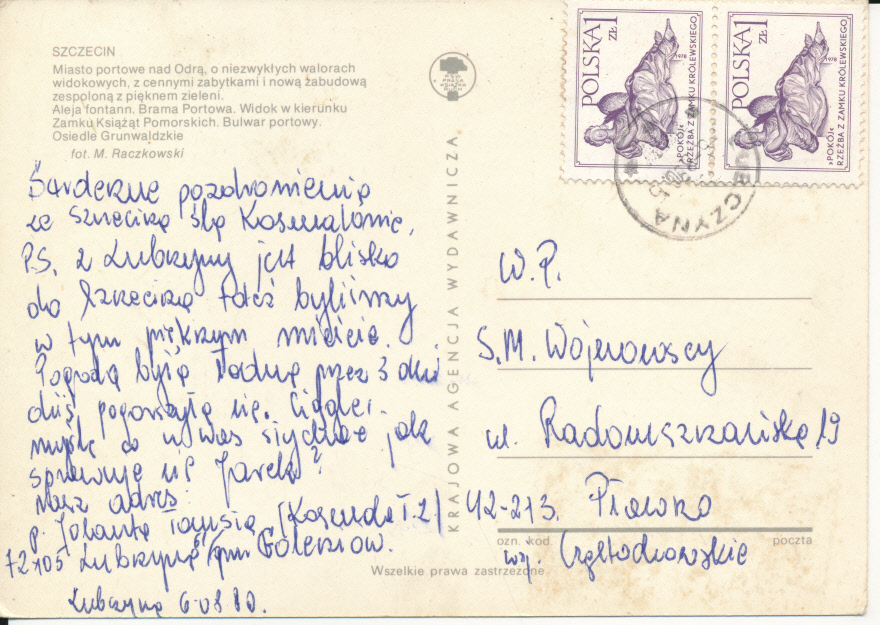 SZCZECIN
Miasto portowe nad Odrą, o niezwykłych walorach
widokowych, z cennymi zabytkami i nową zabudową
zespoloną z pięknem zieleni.
Aleja fontann. Brama Portowa. Widok w kierunku
Zamku Książąt Pomorskich. Bulwar portowy.
Osiedle Grunwaldzkie
fot. M. Raczkowski
Serdeczne pozdrowienia
ze Szczecina ślą
P.S. z Lubczyny jest blisko
do Szczecina też byliśmy
w tym pięknym mieście.
Pogoda była ładna przez 3 dni
dziś pogorszyła się. Ciągle
myślę co u was słychać jak
sprawuje się Jarek?
nasz adres:
p. Jolanta (Kosmala T.Z)
72-105 Lubczyna gm Goleniow.
Lubczyna 6-08 80.
KRAJOWA AGENCJA WYDAWNICZA
POLSKA 1 ZŁ
1978
»POKÓJ«
RZEŹBA Z ZAMKU KRÓLEWSKIEGO
POLSKA 1 ZŁ
1978
»POKÓJ«
RZEŹBA Z ZAMKU KRÓLEWSKIEGO
W.P.
S.M. Wojnowscy
ul. Radomszczańska 19
42-213. Pławno
ozn. kod poczta
woj. Częstochowskie
Wszelkie prawa zastrzeżone